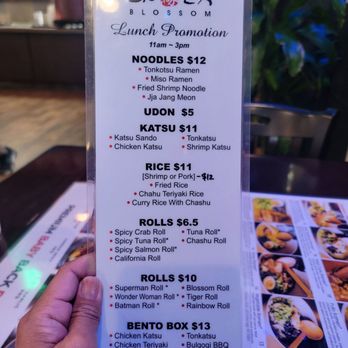 BLOSSOM
Lunch Promotion
11am ~ 3pm
NOODLES $12
• Tonkotsu Ramen
• Miso Ramen
• Fried Shrimp Noodle
• Jja Jang Meon
UDON $5
KATSU $11
• Katsu Sando • Tonkatsu
• Chicken Katsu • Shrimp Katsu
RICE $11
[Shrimp or Pork] - $12
• Fried Rice
• Chahu Teriyaki Rice
• Curry Rice With Chashu
ROLLS $6.5
• Spicy Crab Roll • Tuna Roll*
• Spicy Tuna Roll* • Chashu Roll
• Spicy Salmon Roll*
• California Roll
ROLLS $10
• Superman Roll * • Blossom Roll
• Wonder Woman Roll * • Tiger Roll
• Batman Roll * • Rainbow Roll
BENTO BOX $13
• Chicken Katsu • Tonkatsu
• Chicken Teriyaki • Bulgogi BBQ
PREMIUM BABY BACK